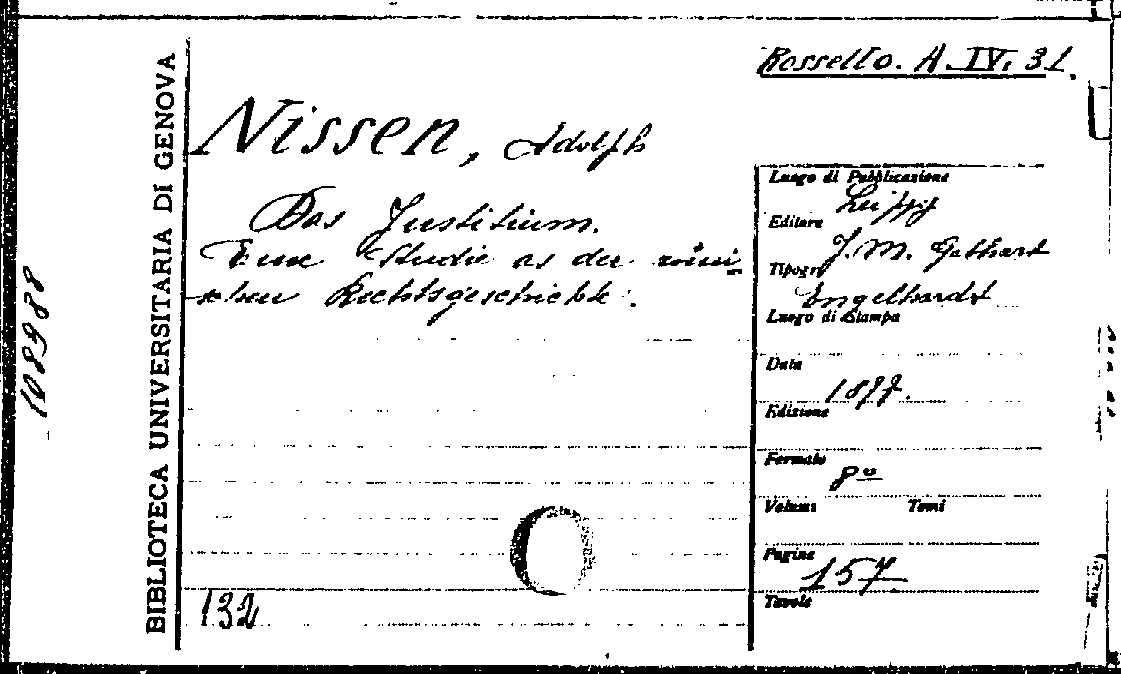 Rossello. A. IV. 31.
BIBLIOTECA UNIVERSITARIA DI GENOVA
108988
Nissen, Adolph
Das Justitium.
Eine Studie as der römi
schen Rechtsgeschichte.
132
Luogo di Pubblicazione
Leipzig
Editore
J. M. Gebhardt
Tipogr
Engelhardt
Luogo di Stampa
Data
1877.
Edizione
Formato
8º
Volumi Tomi
Pagine
157
Tavole